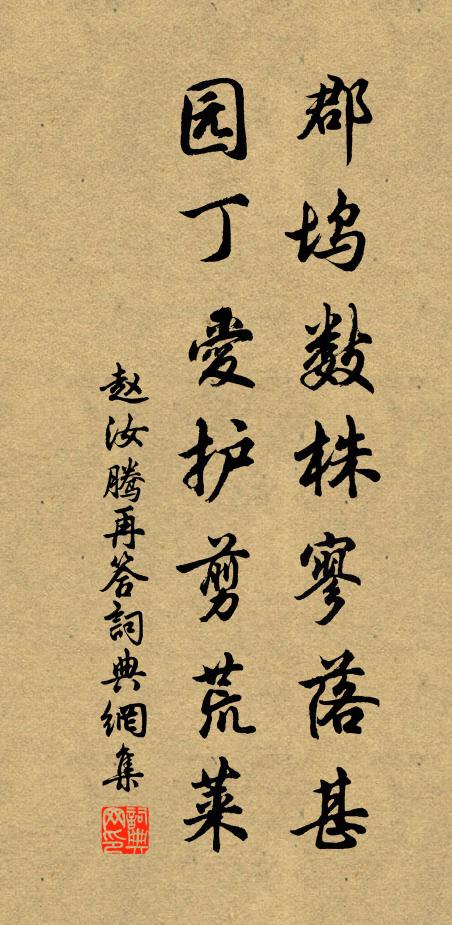 郡坞数株寥落甚
园丁爱护剪荒菜
赵汝腾再答詞典網集
詞典网印